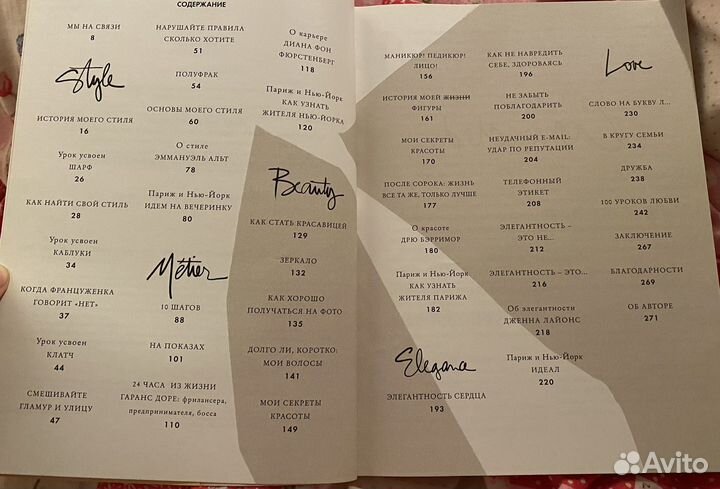 СОДЕРЖАНИЕ
МЫ НА СВЯЗИ
8
Style
ИСТОРИЯ МОЕГО СТИЛЯ
16
Урок усвоен
ШАРФ
26
КАК НАЙТИ СВОЙ СТИЛЬ
28
Урок усвоен
КАБЛУКИ
34
КОГДА ФРАНЦУЖЕНКА
ГОВОРИТ «НЕТ»
37
Урок усвоен
КЛАТЧ
44
СМЕШИВАЙТЕ
ГЛАМУР И УЛИЦУ
47
НАРУШАЙТЕ ПРАВИЛА
СКОЛЬКО ХОТИТЕ
51
ПОЛУФРАК
54
ОСНОВЫ МОЕГО СТИЛЯ
60
О стиле
ЭММАНУЭЛЬ АЛЬТ
78
Париж и Нью-Йорк
ИДЕМ НА ВЕЧЕРИНКУ
80
Métier
10 ШАГОВ
88
НА ПОКАЗАХ
101
24 ЧАСА ИЗ ЖИЗНИ
ГАРАНС ДОРЕ: фрилансера,
предпринимателя, босса
110
О карьере
ДИАНА ФОН
ФЮРСТЕНБЕРГ
118
Париж и Нью-Йорк
КАК УЗНАТЬ
ЖИТЕЛЯ НЬЮ-ЙОРКА
120
Beauty
КАК СТАТЬ КРАСАВИЦЕЙ
129
ЗЕРКАЛО
132
КАК ХОРОШО
ПОЛУЧАТЬСЯ НА ФОТО
135
ДОЛГО ЛИ, КОРОТКО:
МОИ ВОЛОСЫ
141
МОИ СЕКРЕТЫ
КРАСОТЫ
149
МАНИКЮР! ПЕДИКЮР!
ЛИЦО!
156
ИСТОРИЯ МОЕЙ ЖИЗНИ
ФИГУРЫ
161
МОИ СЕКРЕТЫ
КРАСОТЫ
170
ПОСЛЕ СОРОКА: ЖИЗНЬ
ВСЕ ТА ЖЕ, ТОЛЬКО ЛУЧШЕ
177
О красоте
ДРЮ БЭРРИМОР
180
Париж и Нью-Йорк
КАК УЗНАТЬ
ЖИТЕЛЯ ПАРИЖА
182
Elegance
ЭЛЕГАНТНОСТЬ СЕРДЦА
193
КАК НЕ НАВРЕДИТЬ
СЕБЕ, ЗДОРОВАЯСЬ
196
НЕ ЗАБЫТЬ
ПОБЛАГОДАРИТЬ
200
НЕУДАЧНЫЙ E-MAIL:
УДАР ПО РЕПУТАЦИИ
204
ТЕЛЕФОННЫЙ
ЭТИКЕТ
208
ЭЛЕГАНТНОСТЬ –
ЭТО НЕ...
212
ЭЛЕГАНТНОСТЬ – ЭТО...
216
Об элегантности
ДЖЕННА ЛАЙОНС
218
Париж и Нью-Йорк
ИДЕАЛ
220
Love
СЛОВО НА БУКВУ Л...
230
В КРУГУ СЕМЬИ
234
ДРУЖБА
238
100 УРОКОВ ЛЮБВИ
242
ЗАКЛЮЧЕНИЕ
267
БЛАГОДАРНОСТИ
269
ОБ АВТОРЕ
271
Avito